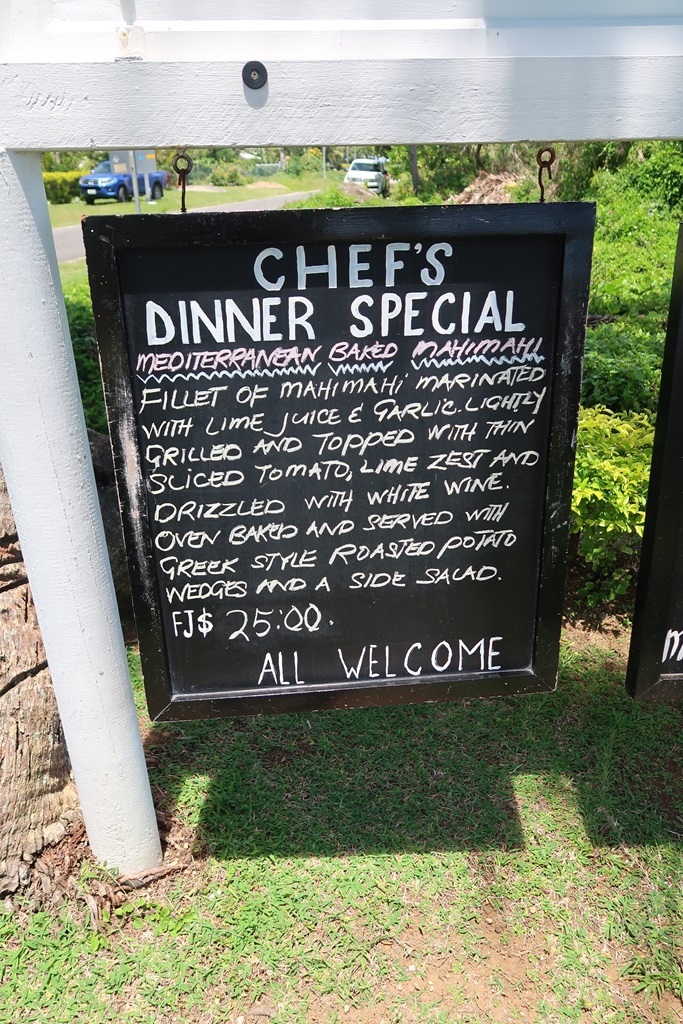 CHEF'S
DINNER SPECIAL
MEDITERRANEAN BAKED MAHIMAHI
FILLET OF MAHIMAHI MARINATED
WITH LIME JUICE & GARLIC. LIGHTLY
GRILLED AND TOPPED WITH THIN
SLICED TOMATO, LIME ZEST AND
DRIZZLED WITH WHITE WINE.
OVEN BAKED AND SERVED WITH
GREEK STYLE ROASTED POTATO
WEDGES AND A SIDE SALAD.
FJ$ 25:00.
ALL WELCOME